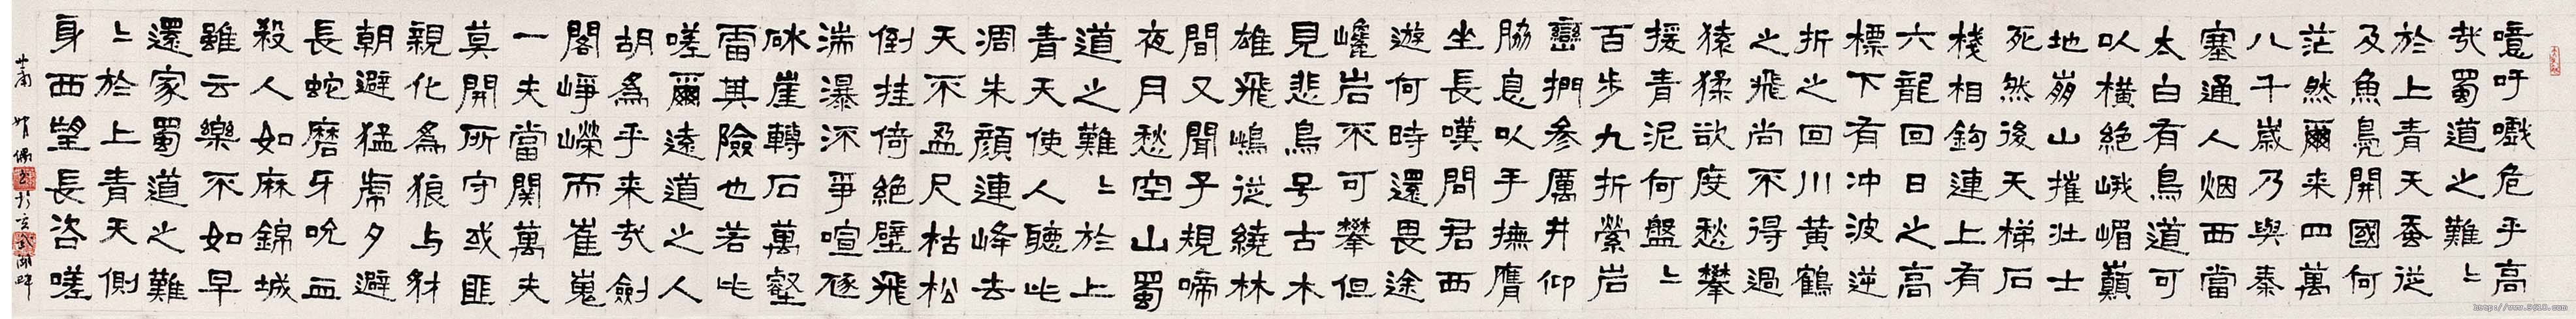 噫吁嚱危乎高
哉蜀道之難〻
於上青天蚕从
及魚鳧開國何
茫然爾来四萬
八千歲乃與秦
塞通人烟西當
太白有鳥道可
以橫絕峨嵋巔
地崩山摧壮士
死然後天梯石
棧相鈎連上有
六龍回日之高
標下有冲波逆
折之回川黃鶴
之飛尚不得過
猿猱欲度愁攀
援青泥何盤〻
百步九折縈岩
巒捫参厲井仰
脇息以手撫膺
坐長嘆問君西
遊何時還畏途
巉岩不可攀但
見悲鳥号古木
雄飛雌從繞林
間又聞子規啼
夜月愁空山蜀
道之難〻於上
青天使人聽此
凋朱顏連峰去
天不盈尺枯松
倒挂倚絕壁飛
湍瀑流爭喧豗
砯崖轉石萬壑
雷其險也若此
嗟爾遠道之人
胡為乎来哉劍
閣崢嶸而崔嵬
一夫當関萬夫
莫開所守或匪
親化為狼与豺
朝避猛虎夕避
長蛇磨牙吮血
殺人如麻錦城
雖云樂不如早
還家蜀道之難
〻於上青天側
身西望長咨嗟
萧娟偶书於玄武湖畔
http://www.9610.com